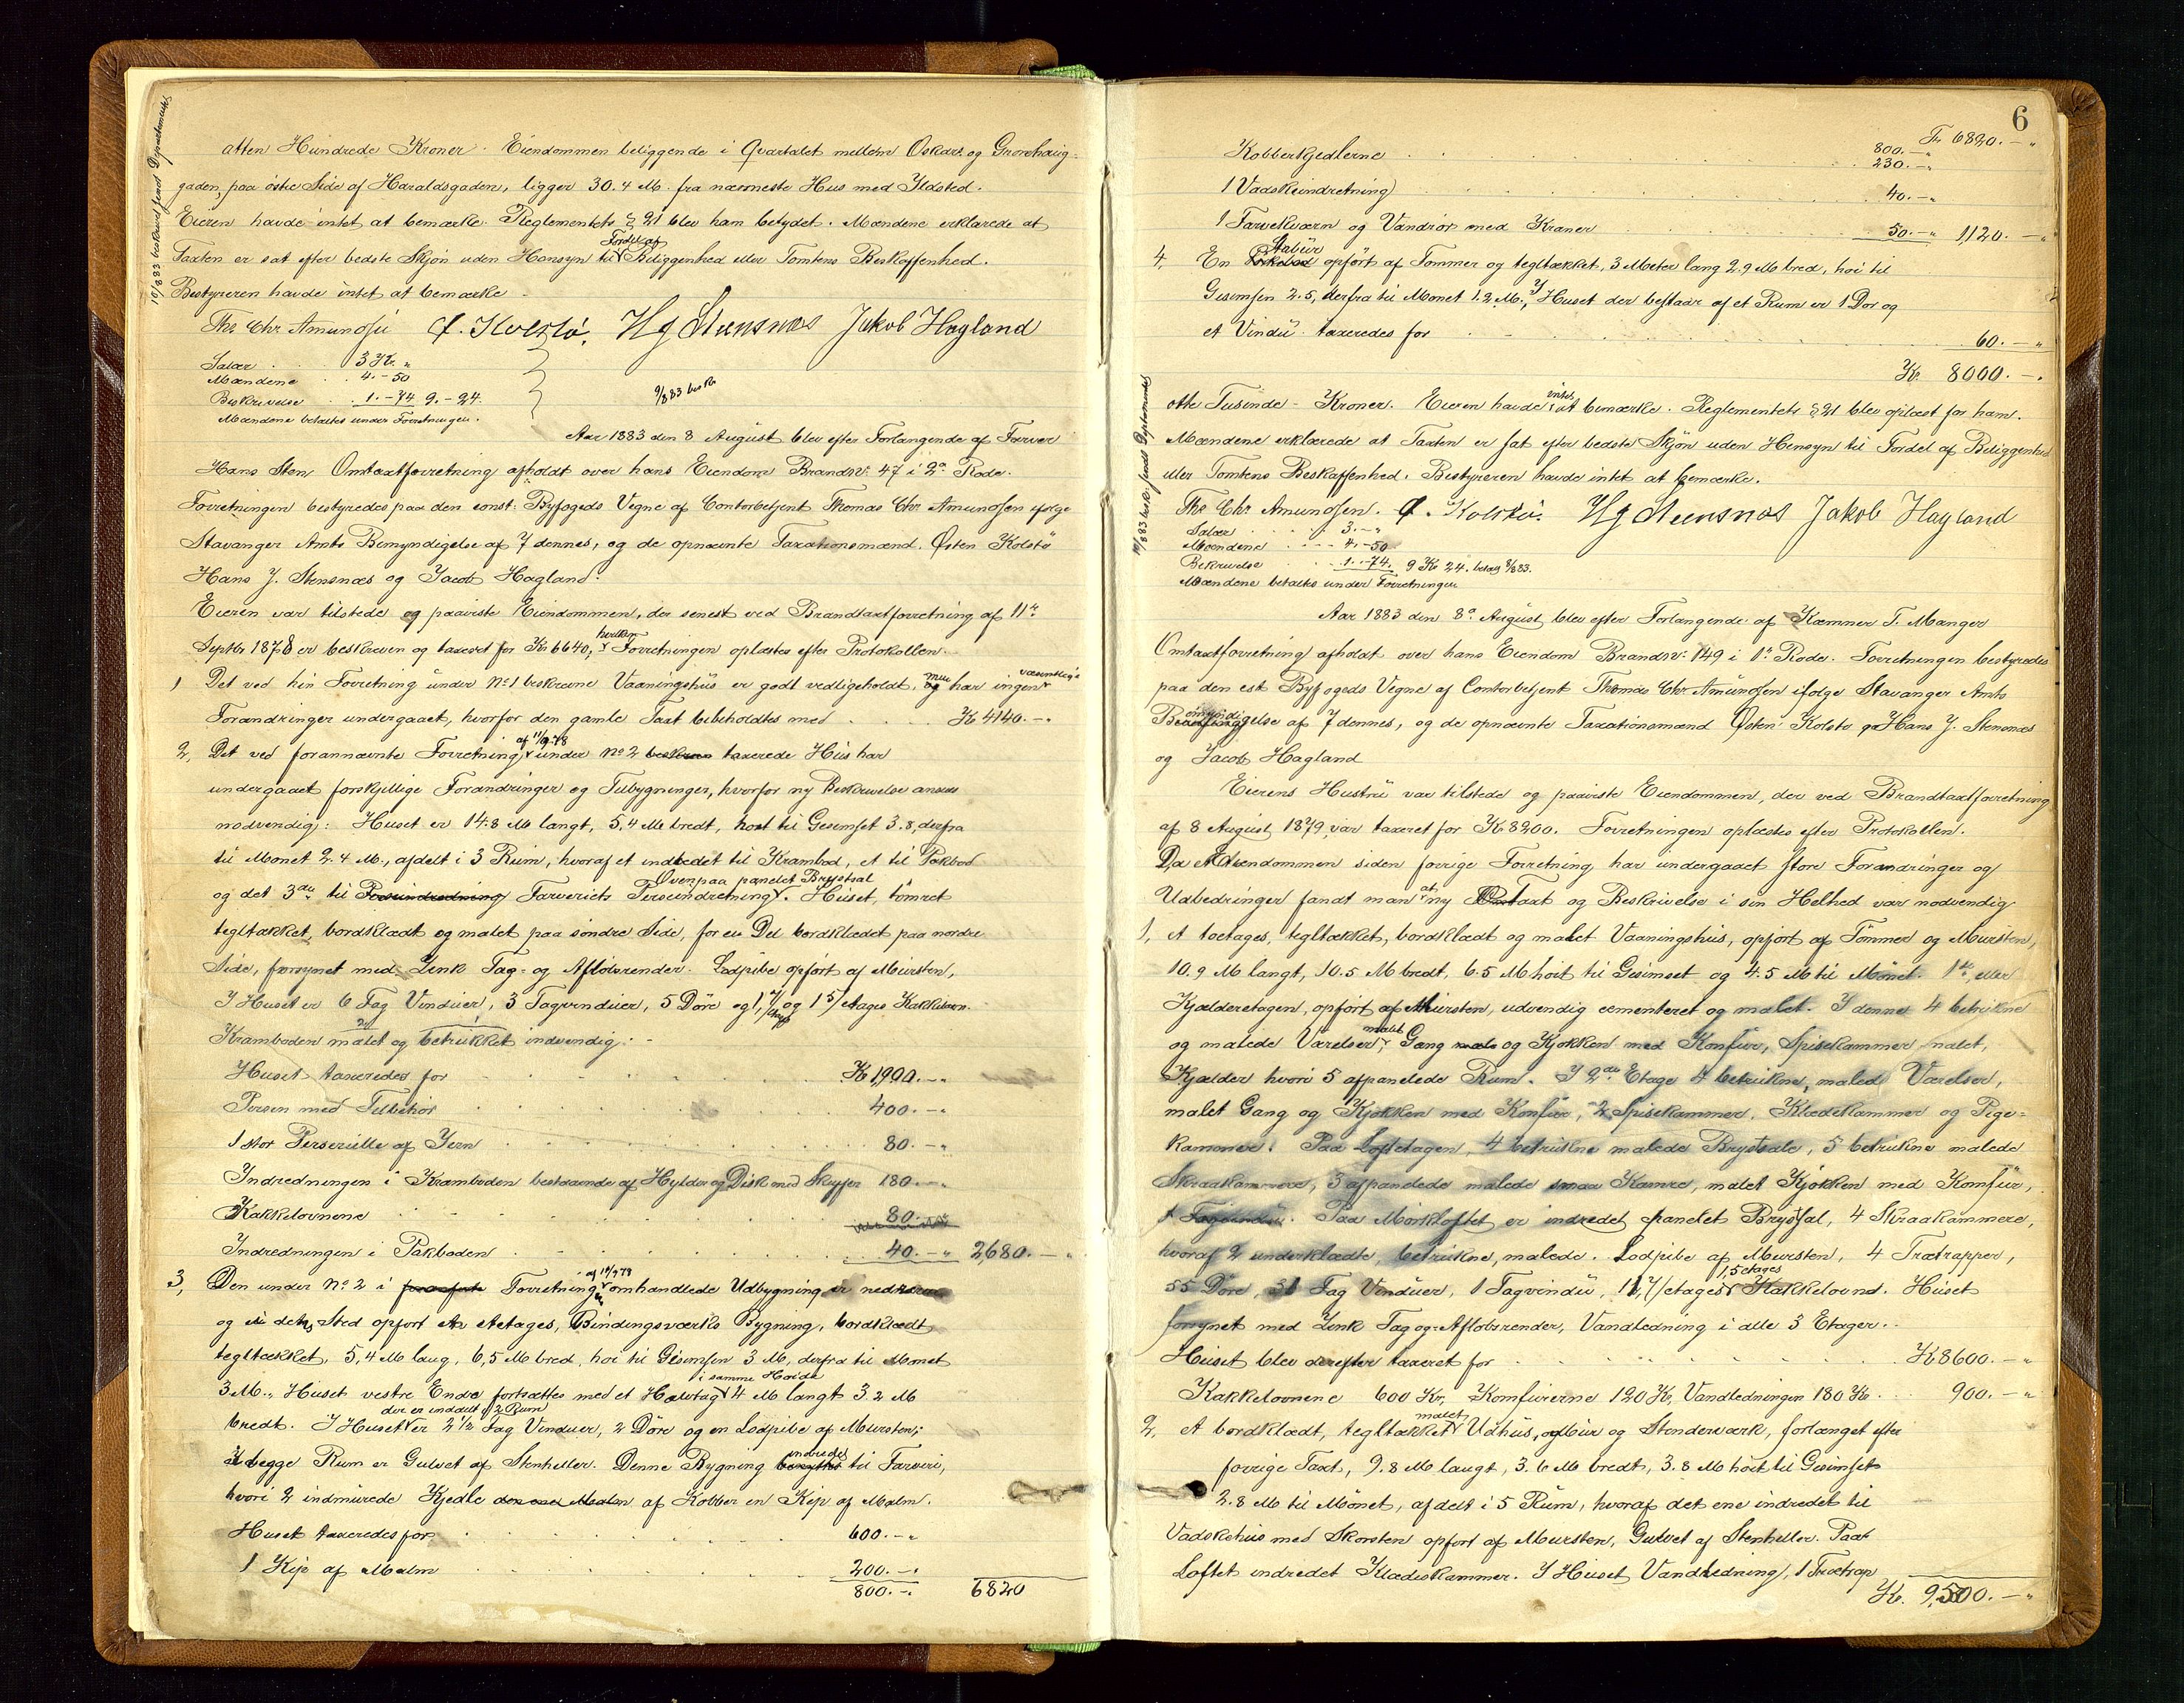 10/8 83 beskrevet sendt Departementet
atten Hundrede Kroner. Eiendommen beliggende i Qvartalet mellem Oskars og Gronhaug-
gaden, paa östre Side af Haraldsgaden, ligger 30.4 M. fra nærmeste Hus med Ildsted.
Eieren havde intet at bemærke. Reglementets § 21 blev ham betydet. Mændene erklærede at
Taxten er sat efter bedste Skjön uden Hensyn til Fordel af Beliggenhed eller Tomtens Beskaffenhed.
Bestyreren havde intet at bemærke
Ths Chr Amundsen Ø. Kolstö. H J Stensnæs Jakob Hagland
Salær . 3 Kr. "
Mændene . . 4.-50
Beskrivelse . . 1.-74 9.-24.
Mændene betaltes under Forretningen.
9/8 83 besk
Aar 1883 den 8 August blev efter Forlangende af Farver
Hans Sten Omtaxtforretning afholdt over hans Eiendom Brandnr. 47 i 2n Rode.
Forretningen bestyredes paa den const. Byfogeds Vegne af Contorbetjent Thomas Chr Amundsen ifølge
Stavanger Amts Bemyndigelse af 7 dennes, og de opnævnte Taxationsmænd Østen Kolstö
Hans J. Stensnæs og Jacob Hagland.
Eieren var tilstede og paaviste Eiendommen, der senest ved Brandtaxtforretning af 11te
Septbr 1878 er beskreven og taxeret for Kr 6640, hvilken Forretningen oplæstes efter Protokollen.
1 Det ved hin Forretning under No 1 beskrevne Vaaningshüs er godt vedligeholdt, men og har ingen væsentlige
Forandringer undergaaet, hvorfor den gamle Taxt bibeholdtes med . . . Kr 4140.-"
2, Det ved forannævnte Forretning af 11/9 78 under No 2 beskrevne taxerede Hüs har
undergaaet forskjellige Forandringer og Tilbygninger, hvorfor ny Beskrivelse ansaaes
nødvendig: Huset er 14.8 M langt, 5,4 M bredt, höit til Gesimset 3.8, derfra
til Mönet 2.4 M., afdelt i 3 Rüm, hvoraf et indredet til Krambod, et til Pakbod
og det 3die til Farveriets Perseindretning. Ovenpaa panelet Brystsal. Hüset, tömret
tegltækket, bordklædt og malet paa söndre Side, for en Del bordklædet paa nordre
Side, forsynet med Zink Tag- og Aflöbsrender. Lodpibe opfört af Mürsten,
I Huset er 6 Fag Vindüer, 3 Tagvindüer, 5 Döre og 1, og 1 5/ etages Kakkelovn.
Kramboden malet og betrükket indvendig. -
Hüset taxeredes for . . . Kr 1900.-"
Persen med Tilbehör . . . 400.-"
1 stor Perserülle af Jern . . . 80.-"
Indredningen i Kramboden bestaaende af Hylder og Disk med Skuffer 180.-"
Kakkelovnene . . . 80.-"
Indredningen i Pakboden . . . 40.-" 2,680.-"
3, Den under No 2 i Forretning af 11/9 78 omhandlede Udbygning er nedreven
og i dets Sted opfort en etetages, Bindingsværks Bygning, bordklædt
tegltækket, 5,4 M lang, 6,5 M bred, höi til Gesimsen 3 M, derfra til Mönet
3 M., Hüset vestre Ende fortsættes med et Halvtag i samme Höide 4 M langt 3.2 M
bredt. I Hüset der er inddelt i 2 Rum er 2 1/2 Fag Vinduer, 2 Döre og en Lodpibe af Mürsten;
I begge Rum er Gulvet af Stenheller. Denne Bygning benyttes indredes til Farveri,
hvori 2 indmürede Kjedle af Kobber en Kip af Malm.
Huset taxeredes for . . . 600.-"
1 Kip af Malm . . . 200.-"
800.-" 6820
6
Tr. 6820.-"
800.-"
Kobberkjedlerne . . . 230.-"
1 Vadskeindretning . . . 40.-"
1 Farvekværn og Vandrör med Kraner . . . 50.-" 1,120.-"
4, En Stabür opfört af Tömmer og tegltækket, 3 Meter lang 2.9 M bred, höi til
Gesimsen 2.5, derfra til Mönet 1.2 M., I Huset der bestaar af et Rum er 1 Dör og
et Vindü. taxeredes for . . . 60.-"
Kr. 8000.-"
otte Tusinde - Kroner. Eieren havde intet at bemærke. Reglementets § 21 blev oplæst for ham.
Mændene erklærede at Taxten er sat efter bedste Skjön uden Hensyn til Fordel af Beliggenhed
eller Tomtens Beskaffenhed. Bestyreren havde intet at bemærke.
Ths Chr Amundsen. Ø. Kolstö. H J Stensnæs Jakob Hagland
Salær . . 3.-"
Mændene . . . 4.-50
Bekrivelse . . 1.-74. 9 Kr 24. betalt 8/8 83.
Mændene betaltes under Forretningen
10/8 83 besk. sendt Departementet
Aar 1883 den 8de August blev efter Forlangende af Kæmner T. Manger
Omtaxtforretning afholdt over hans Eiendom Brandnr. 149 i 1n Rode. Forretningen bestyredes
paa den cst Byfogeds Vegne af Contorbetjent Thomas Chr. Amundsen ifölge Stavanger Amts
Bemyndigelse af 7 dennes, og de opnævnte Taxationsmænd Østen Kolstö og Hans J. Stensnæs
og Jacob Hagland
Eierens Hustrü var tilstede og paaviste Eiendommen, der ved Brandtaxtforretning
af 8 August 1879, var taxeret for Kr 8200. Forretningen oplæstes efter Protokollen.
Da Eiendommen siden forrige Forretning har undergaaet store Forandringer og
Udbedringer fandt man at ny Taxt og Beskrivelse i sin Helhed var nødvendig.
1, et toetages, tegltækket, bordklædt og malet Vaaningshüs, opfört af Tömmer og Mürsten,
10.9 M langt, 10.5 M bredt, 6.5 M höit til Gesimset og 4.5 M til Mönet. 1ste, eller
Kjælderetagen, opfört af Mürsten, udvendig cementeret og malet. I denne 4 betrükne
og malede Værelser, malet Gang og Kjøkken med Konfür, Spisekammer malet,
Kjælder hvori 5 afpanelede Rum. I 2den Etage 4 betrükne, malede Værelser,
malet Gang og Kjökken med Konfür, 2 Spisekammer, Klædekammer og Pige-
kammer. Paa Loftetagen, 4 betrükne malede Brystsale, 5 betrükne malede
Skraakammere, 3 afpanelede malede smaa Kamre, malet Kjökken med Komfür,
1 Tagvindü. Paa Mörkloftet er indredet panelet Brystsal, 4 Skraakammere,
hvoraf 2 underklædte, betrükne, malede. Lodpibe af Mursten, 4 Trætrapper,
55 Döre, 31 Fag Vindüer, 1 Tagvindü, 11, 7/etages 1, 5 etages Kakkelovnd. Hüset
forsynet med Zink Tag og Aflöbsrender, Vandledning i alle 3 Etager.
Hüset blev derefter taxeret for . . . Kr 8600.-"
Kakkelovnene 600 Kr., Komfürerne 120 Kr, Vandledningen 180 Kr. . . 900.-"
2, et bordklædt, tegltækket malet Udhüs, af Mür og Stenderværk, forlænget efter
forrige Taxt, 9.8 M langt, 3.6 M bredt, 3.8 M höit til Gesimset
2.8 M til Mönet, afdelt i 5 Rüm, hvoraf det ene indredet til
Vadskehüs med Skorsten opfört af Mürsten, Gulvet af Stenheller. Paa
Loftet indredet Klædeskammer. I Hüset Vandledning, 1 Trætrap
Kr. 9,500.-"